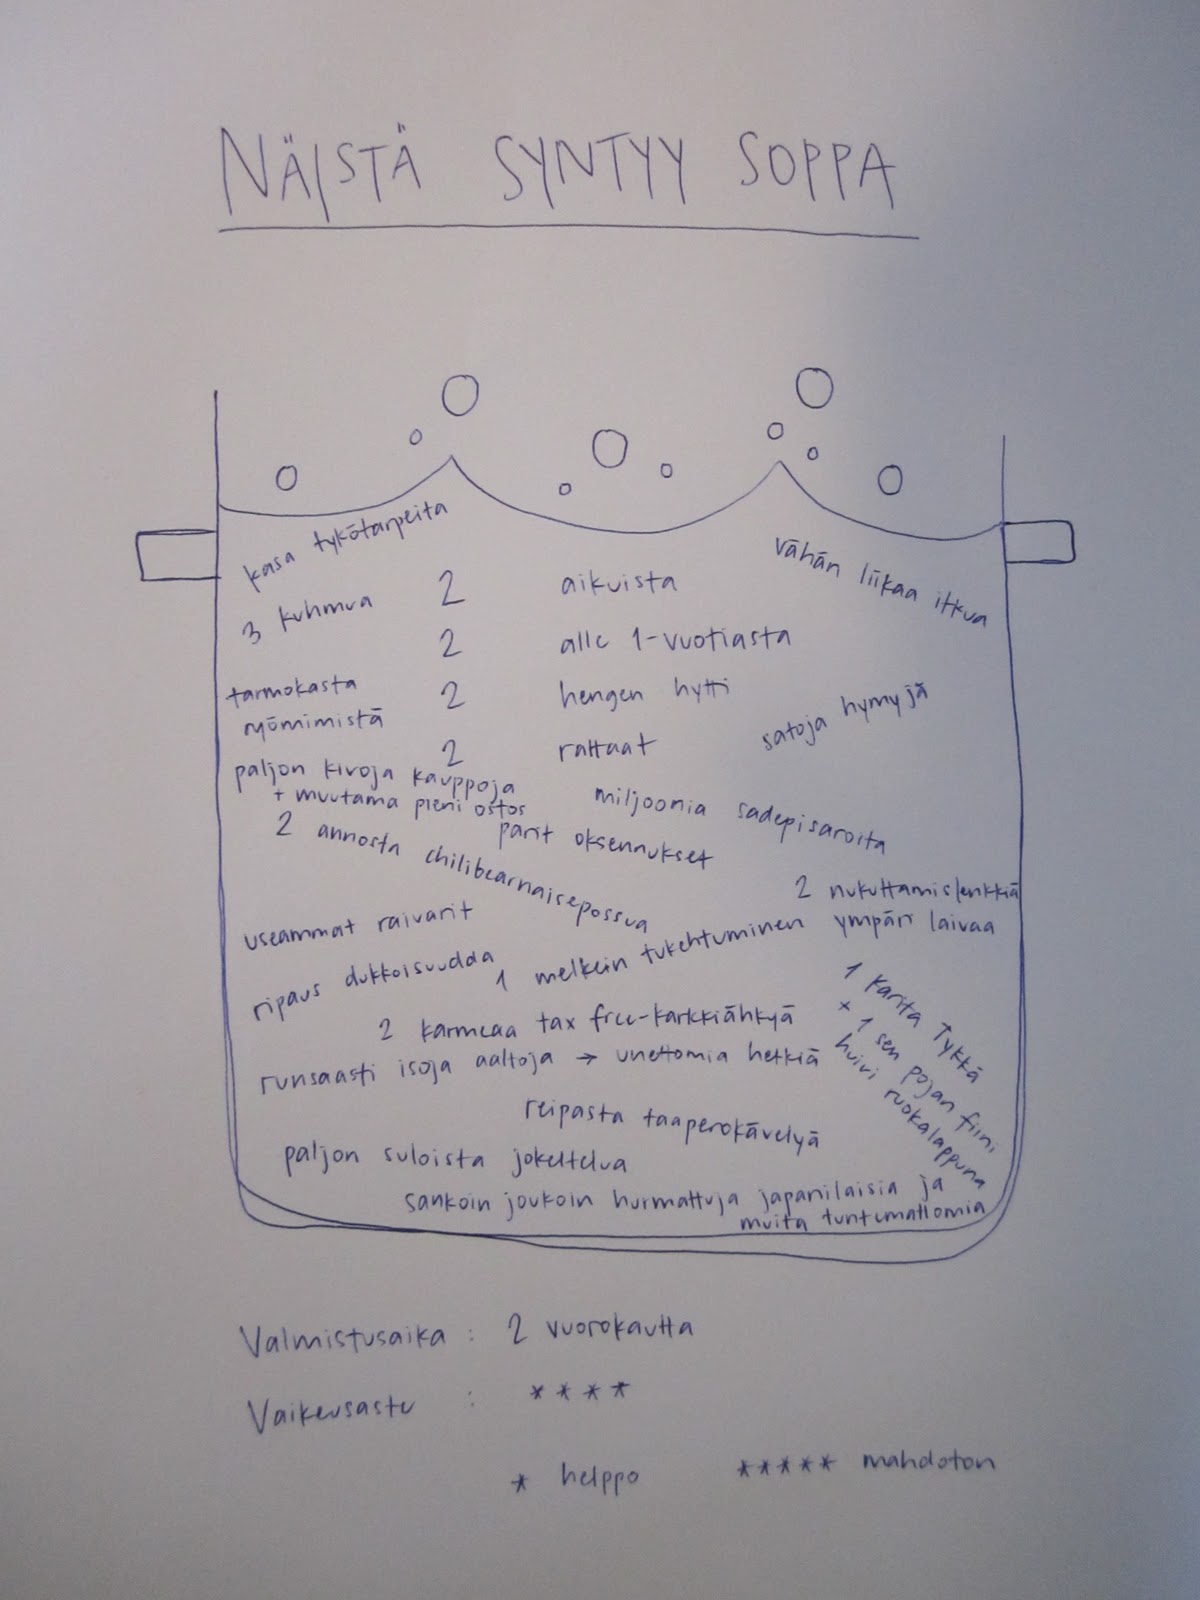 NÄISTÄ SYNTYY SOPPA
kasa tykötarpeita
vähän liikaa itkua
3 kuhmua
2 aikuista
2 alle 1-vuotiasta
tarmokasta
ryömimistä
2 hengen hytti
satoja hymyjä
2 rattaat
paljon kivoja kauppoja
+ muutama pieni ostos
miljoonia sadepisaroita
parit oksennukset
2 annosta chilibearnaisepossua
2 nukuttamislenkkiä
ympäri laivaa
useammat raivarit
1 melkein tukehtuminen
ripaus dukkoisuudda
1 Karita Tykkä
+ 1 sen pojan fiini
huivi ruokalappuna
2 karmeaa tax free-karkkiähkyä
runsaasti isoja aaltoja → unettomia hetkiä
reipasta taaperokävelyä
paljon suloista jokeltelua
sankoin joukoin hurmattuja japanilaisia ja
muita tuntemattomia
Valmistusaika : 2 vuorokautta
Vaikeusaste : ****
* helppo ***** mahdoton